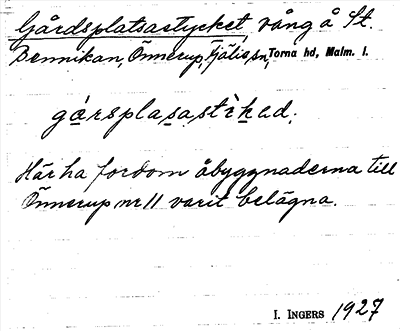 Gårdsplatsastycket, vång å St.
Bennikan, Önnerup, Fjälie sn, Torna hd, Malm. l.
gársplasastìkad.
Här ha fordom åbyggnaderna till
Önnerup nr 11 varit belägna.
I. INGERS 1927